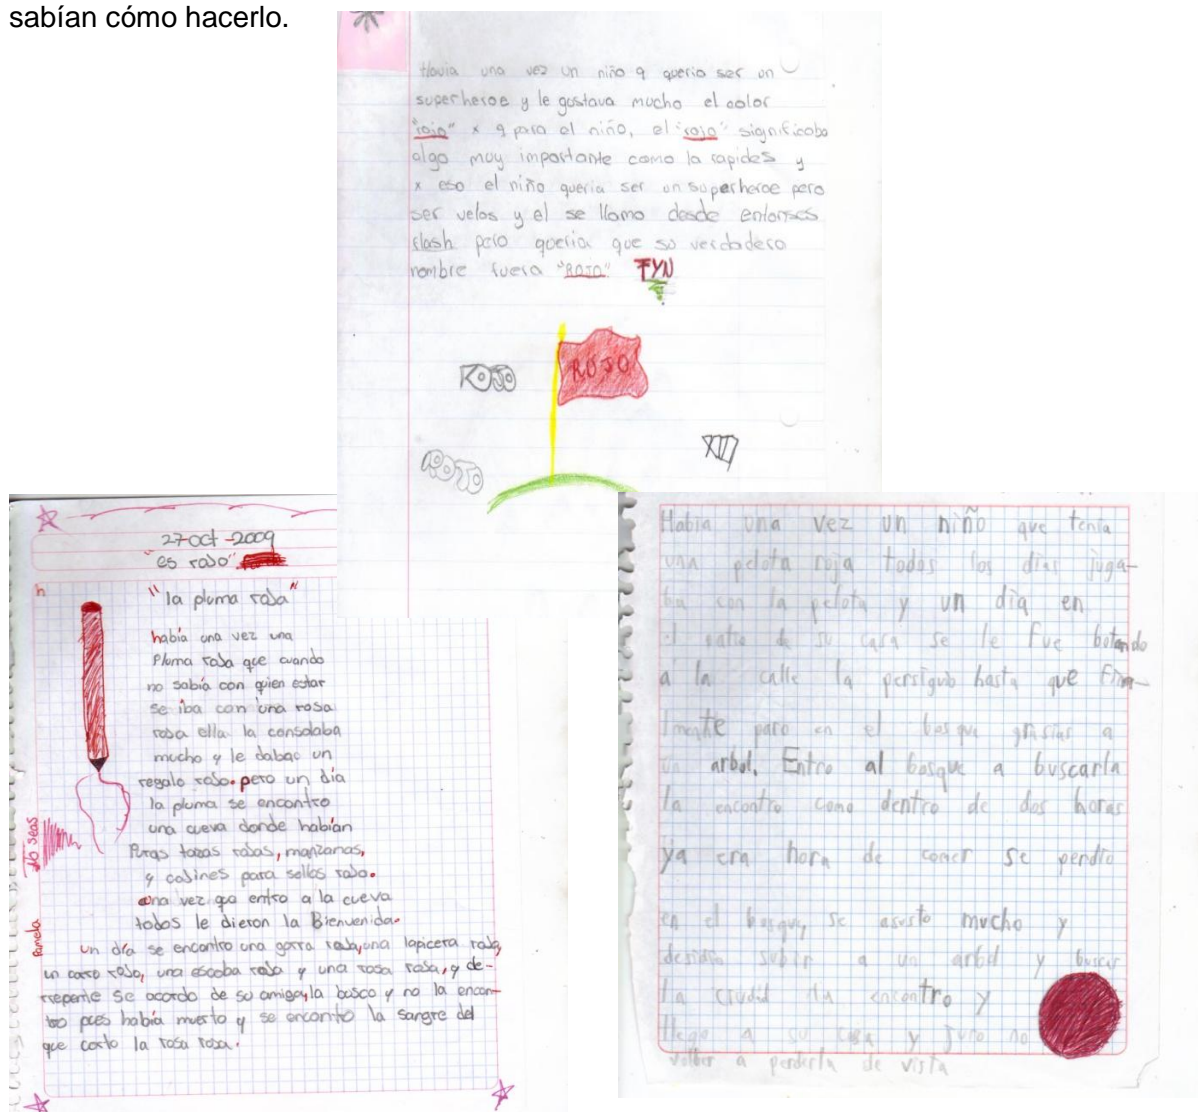 sabían cómo hacerlo.
Havia una vez un niño q queria ser un
superheroe y le gustava mucho el color
"rojo" x q para el niño, el "rojo" significaba
algo muy importante como la rapides y
x eso el niño queria ser un superheroe pero
ser velos y el se llamo desde entonses
flash pero queria que su verdadero
nombre fuera "ROJO" FYN
ROJO
ROJO
ROJO
27 oct -2009
"es rojo"
"la pluma roja"
había una vez una
Pluma roja que cuando
no sabía con quien estar
se iba con una rosa
roja ella la consolaba
mucho y le dabao un
regalo rojo. pero un día
la pluma se encontro
una cueva donde habían
Puras rojas, manzanas,
y cojines para sellos rojo.
una vez que entro a la cueva
todos le dieron la Bienvenida.
un día se encontro una gorra roja, una lapicera roja,
un carro rojo, una escoba roja y una rosa roja, y de-
rrepente se acordo de su amiga, la busco y no la encon-
tro pues había muerto y se encontro la sangre del
que corto la rosa roja.
No seas
Pamela
Habia una vez un niño que tenia
una pelota roja todos los días juga-
ba con la pelota y un día en
el patio de su casa se le fue botando
a la calle la persiguio hasta que fina-
lmente paro en el bosque grasias a
un arbol. Entro al bosque a buscarla
la encontro como dentro de dos horas
ya era hora de comer se perdio
en el bosque, se asusto mucho y
desidio subir a un arbol y buscar
la ciudad la encontro y
llego a su casa y juro no
volver a perderla de vista